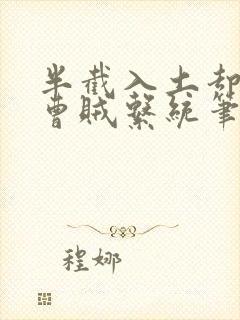 半截入土却
曹贼系统笔
程娜